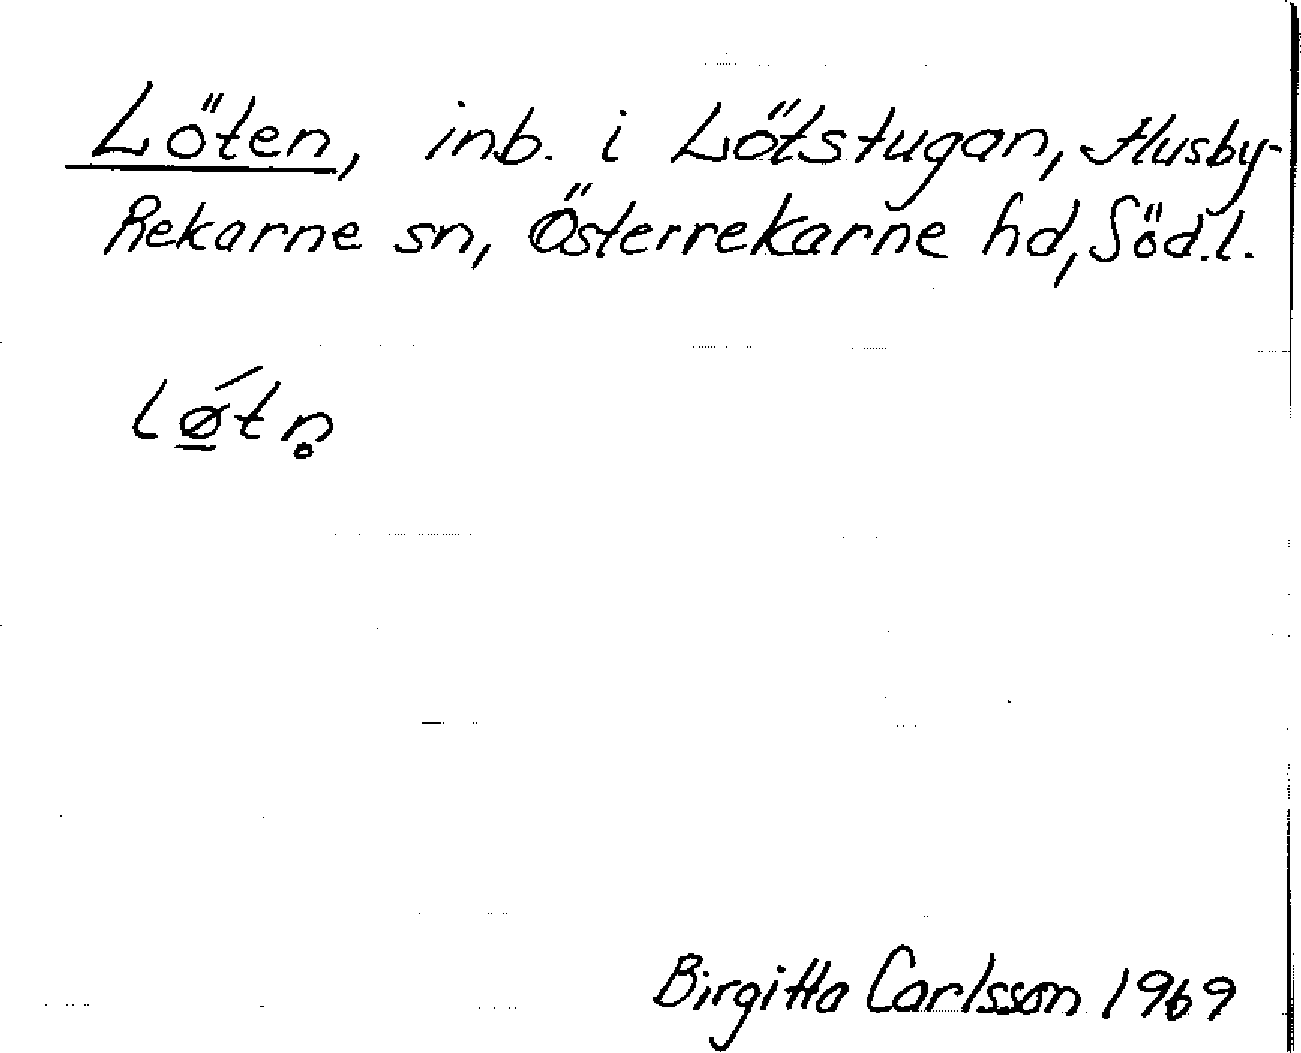 Löten, inb. i Lötstugan, Husby-
Rekarne sn, Österrekarne hd, Söd.l.
lǿ̲tn̥
Birgitta Carlsson 1969